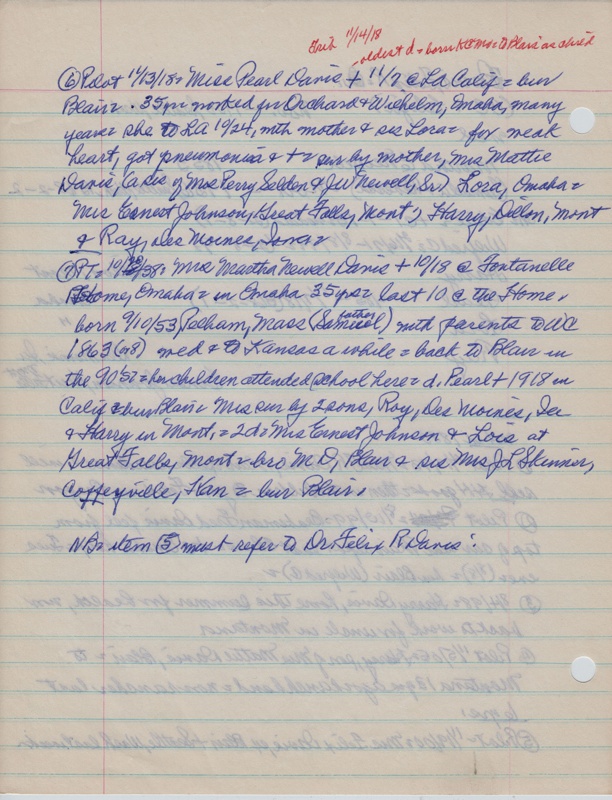 Trib 11/14/18
oldest d = born K.C. Mo = to Blair as a child
⑥ Pilot 11/13/18: Miss Pearl Davis + 11/7 @ LA Calif = bur
Blair = . 35 yrs worked for Orchard & Wilhelm, Omaha, many
years = she to LA 10/24, with mother & sis Lora = for weak
heart, got pneumonia & + = sur by mother, Mrs Mattie
Davis, (a sis of Mrs Perry Selden & JW Newell, Sr) Lora, Omaha =
Mrs Ernest Johnson, Great Falls, Mont ? Harry, Dillon, Mont
& Ray, Des Moines, Iowa =
⑦ PT = 10/20/38: Mrs Martha Newell Davis + 10/18 @ Fontanelle
Home, Omaha = in Omaha 35 yrs = last 10 @ the Home.
born 9/10/53 Pelham, Mass (Samuel) father with parents to WC
1863 (or 8) wed & to Kansas a while = back to Blair in
the 90's? = her children attended school here = d. Pearl + 1918 in
Calif = bur Blair = Mrs sur by 2 sons, Roy, Des Moines,
& Harry in Mont, = 2 d = Mrs Ernest Johnson & Lois at
Great Falls, Mont = bro M D, Blair & sis Mrs J L Skinner,
Coffeyville, Kan = bur Blair.
NB: item ⑤ must refer to Dr. Felix R Davis.